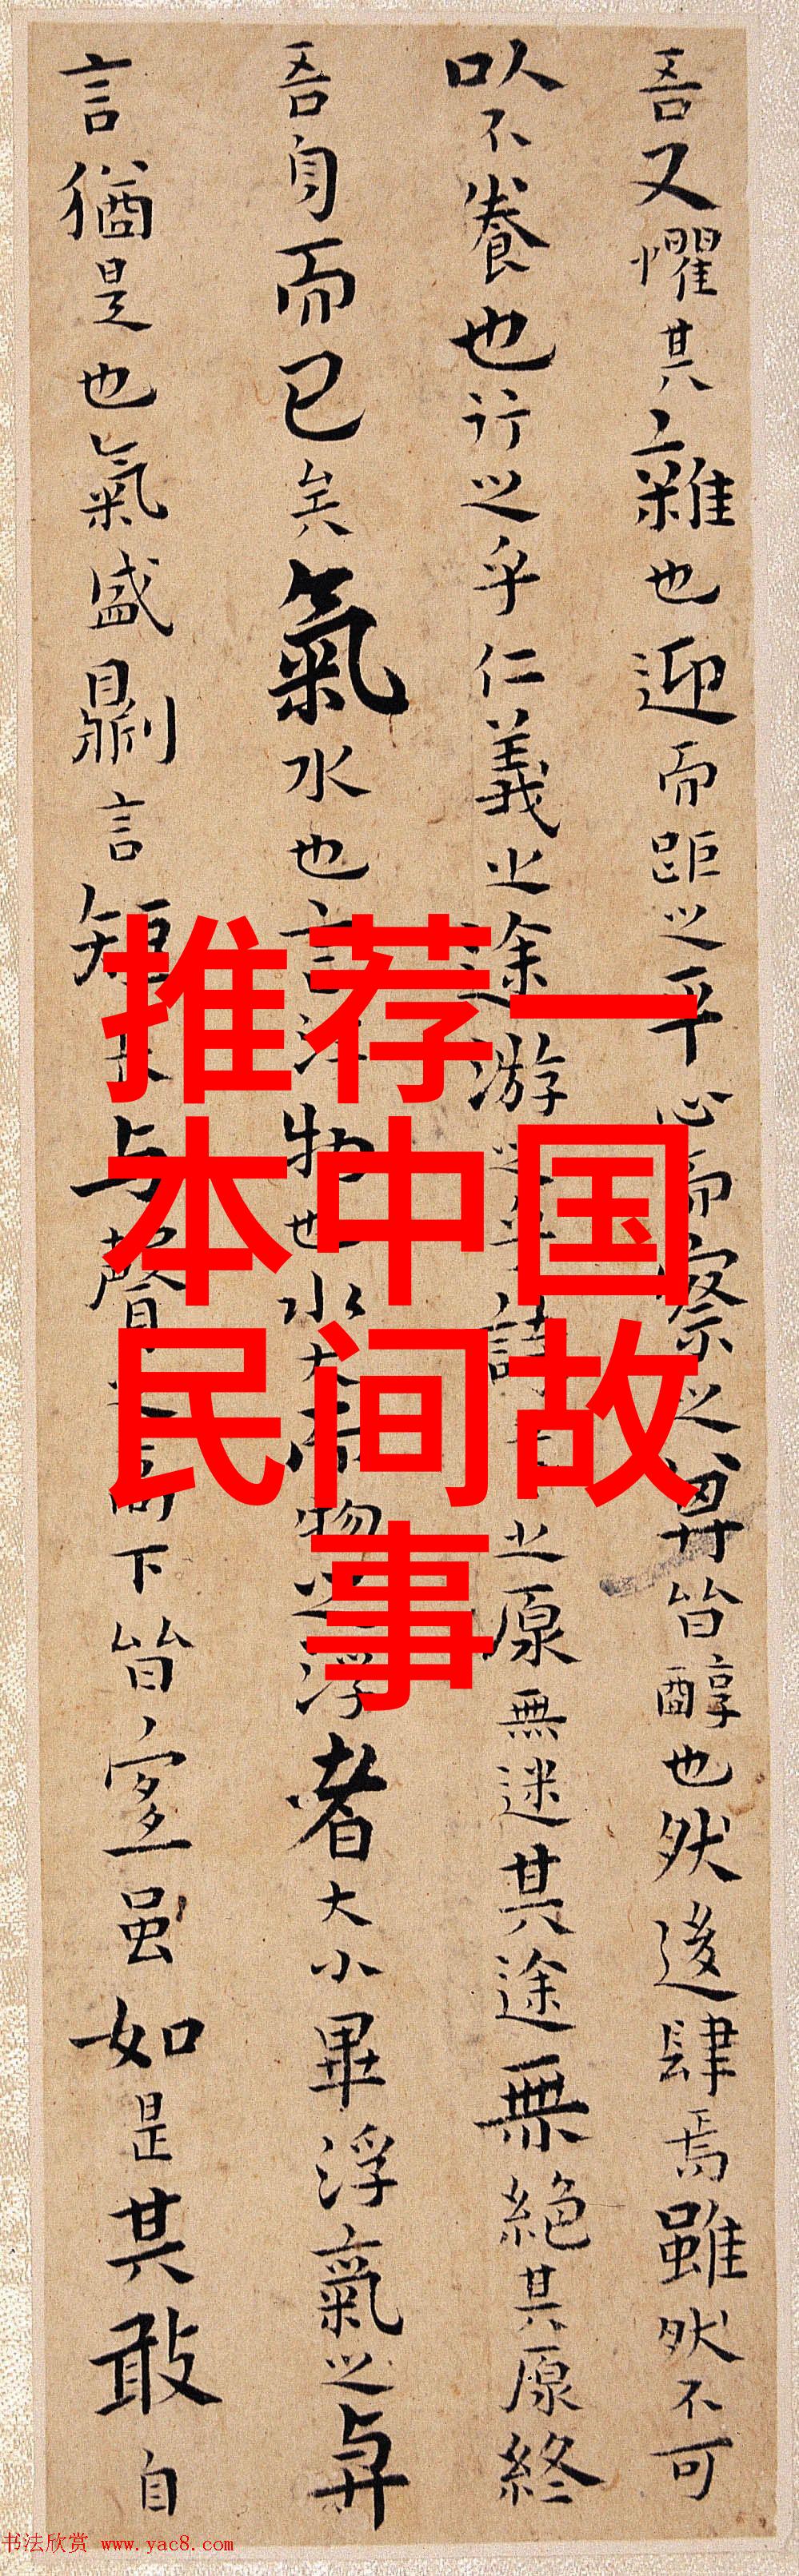 吾又懼其雜也迎而距之平心而察之其皆醇也然後肆焉雖然不可
以不養也行之乎仁義之途游之乎詩之原無迷其途無絕其原終
吾身而已矣氣水也言浮物也水大而物之浮者大小畢浮氣之與
言猶是也氣盛則言短長与聲之高下皆宜虽如是其敢自
推荐一
本中国
民间故
事
书法欣赏 www.yac8.com